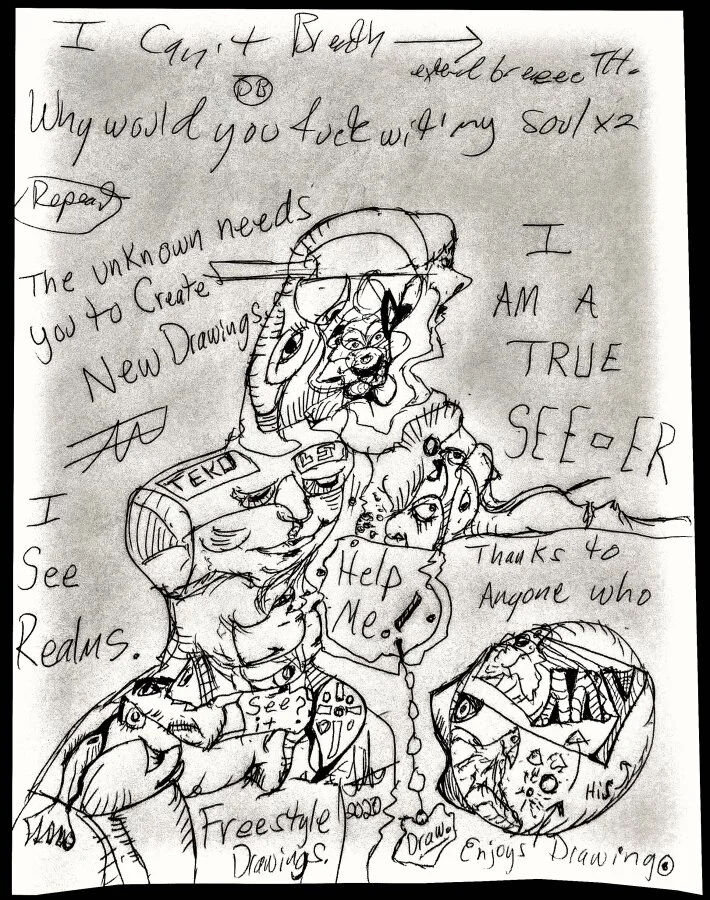 I Can't Breath
extend breeee TH.
DB
Why would you fuck wit' my Soul x2
Repeat
The unknown needs
you to Create
New Drawings.
I
AM A
TRUE
SEE-ER
TEKO
I
See
Realms.
Help
Me.
Thanks to
Anyone who
See?
it
His
2020
Freestyle
Drawings.
Draw.
Enjoys Drawing